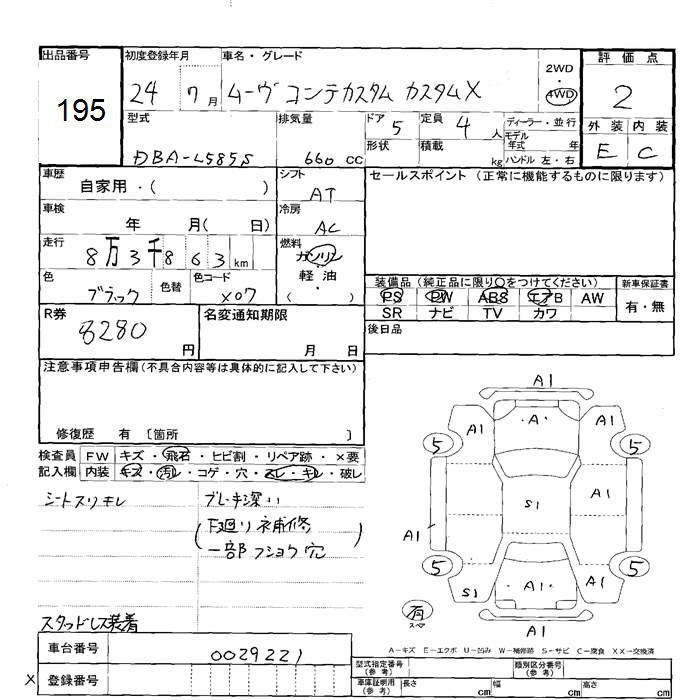 出品番号 初度登録年月 車名・グレード 2WD 評価点
195 24 7月 ムーヴ コンテカスタム カスタムX ・4WD 2
型式 排気量 ドア 5 定員 4人 ディーラー・並行 外装 内装
DBA-L585S 660 cc 形状 積載 kg モデル年式 年 E C
ハンドル 左・右
車歴 シフト セールスポイント (正常に機能するものに限ります)
自家用・( ) AT
車検 冷房
年 月( 日) AC
走行 燃料
8万3千863km ガソリン
色 色替 色コード 軽油 装備品 (純正品に限り○をつけてください) 新車保証書
ブラック X07 ( ) PS PW ABS エアB AW 有・無
SR ナビ TV カワ
R券 名変通知期限 後日品
8280円 月 日
注意事項申告欄(不具合内容等は具体的に記入して下さい)
修復歴 有 〔箇所 〕
検査員 FW キズ・飛石・ヒビ割・リペア跡・×要
記入欄 内装 キズ・汚レ・コゲ・穴・スレ・キレ・破レ
シートスリキレ ブレーキ深い
(下廻リネ補修
一部フショク穴)
スタッドレス装着
A1
A1 A A1
5 5
S1 A1
A1
5 5
S1 A1 A1
有
スペア
A1
A-キズ E-エクボ U-凹み W-補修跡 S-サビ C-腐食 XX-交換済
車台番号 0029221 型式指定番号(参考) 類別区分番号(参考)
X 登録番号 車庫証明用(参考) 長さ cm 幅 cm 高さ cm